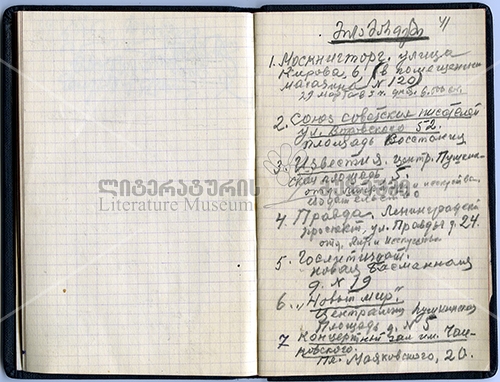 მისამართები 41
1. Москниготорг. улица
Кирова, 6, (в помещении
магазина N 120)
29 марта в 5 ч. дня
2. Союз советских писателей
ул. Воровского 52.
площадь Восстания
3. Известия. центр. Пушкин-
ская площадь 5.
отд. лит. и искусства,
издательство
ლიტერატურის მუზეუმი
Literature Museum
4. Правда. Ленинградский
проспект, ул. Правды д. 24.
отд. лит. и искусства.
5. Гослитиздат.
новая Басманная
д. N 19
6. „Новый мир."
Центральная Пушкинская
Площадь д. N 5
7 Концертный зал им. Чай-
ковского.
пл. Маяковского, 20.